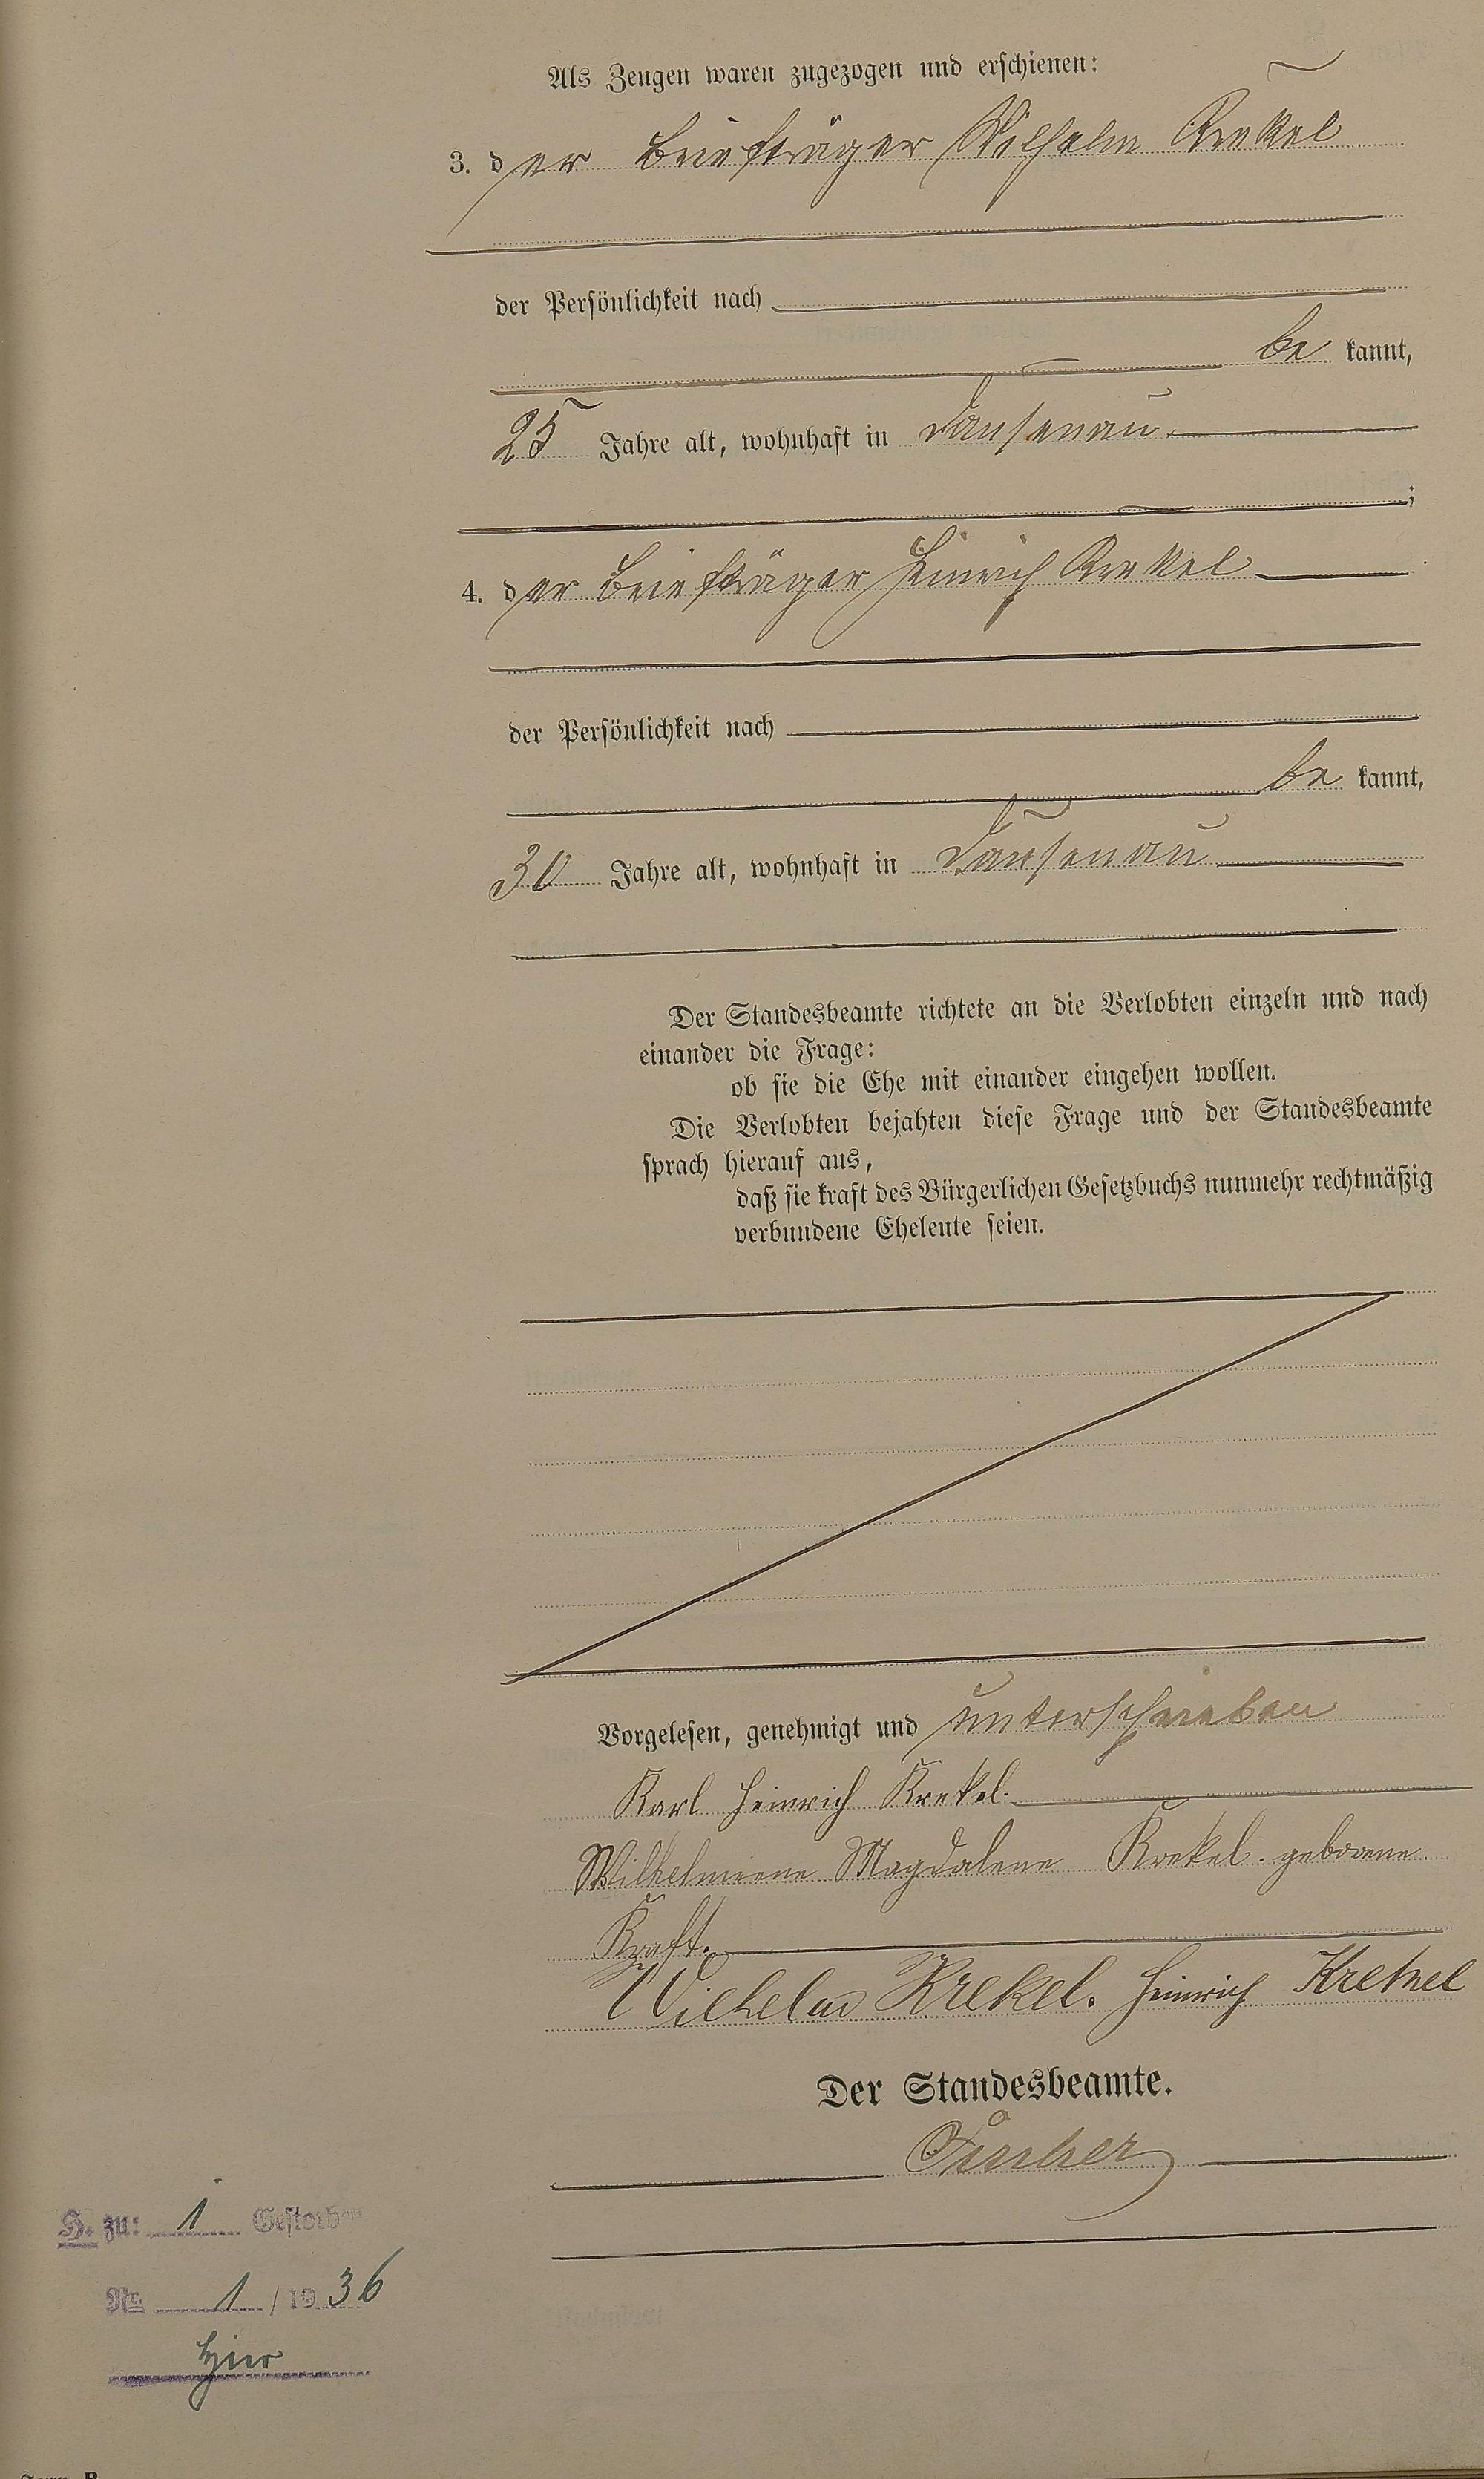 Als Zeugen waren zugezogen und erschienen:
3. der Briefträger Wilhelm Krekel
der Persönlichkeit nach
be kannt,
25 Jahre alt, wohnhaft in Dausenau
;
4. der Briefträger Heinrich Krekel
der Persönlichkeit nach
be kannt,
30 Jahre alt, wohnhaft in Dausenau
Der Standesbeamte richtete an die Verlobten einzeln und nach
einander die Frage:
ob sie die Ehe mit einander eingehen wollen.
Die Verlobten bejahten diese Frage und der Standesbeamte
sprach hierauf aus,
daß sie kraft des Bürgerlichen Gesetzbuchs nunmehr rechtmäßig
verbundene Eheleute seien.
Vorgelesen, genehmigt und unterschrieben
Karl Heinrich Krekel.
Wilhelmiene Magdalene Krekel. geborene
Kraft.
Wilhelm Krekel. Heinrich Krekel
Der Standesbeamte.
H. zu: 1 Gestorben
Nr. 1 / 1936
hier